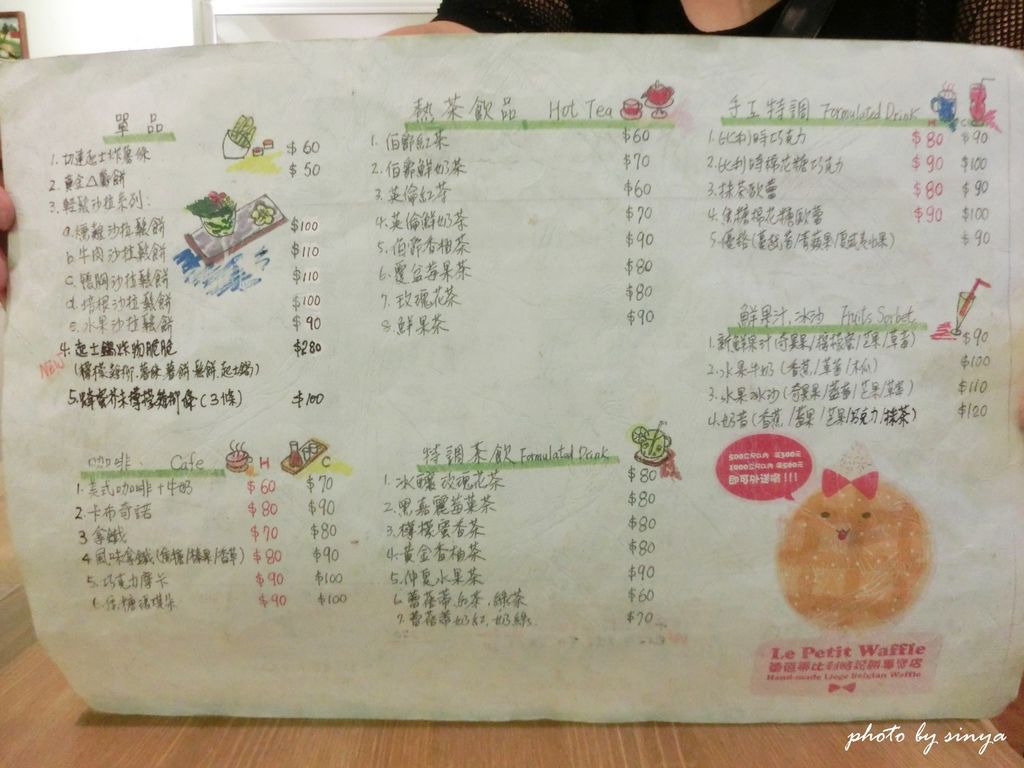 單品
1. 切達起士炸薯條 $60
2. 黃金△薯餅 $50
3. 輕鬆沙拉系列:
a. 燻雞沙拉鬆餅 $100
b. 牛肉沙拉鬆餅 $110
c. 鴨胸沙拉鬆餅 $110
d. 培根沙拉鬆餅 $100
e. 水果沙拉鬆餅 $90
NEW 4. 起士鍋炸物脆脆 $280
(檸檬雞柳.薯條.薯餅.鬆餅.起士鍋)
5. 蜂蜜芥末檸檬雞柳條(3條) $100
咖啡. Cafe H C
1. 美式咖啡+牛奶 $60 $70
2. 卡布奇諾 $80 $90
3 拿鐵 $70 $80
4 風味拿鐵(焦糖/榛果/香草) $80 $90
5. 巧克力摩卡 $90 $100
6. 焦糖瑪琪朵 $90 $100
熱茶飲品 Hot Tea
1. 伯爵紅茶 $60
2. 伯爵鮮奶茶 $70
3. 英倫紅茶 $60
4. 英倫鮮奶茶 $70
5. 伯爵香柚茶 $90
6. 覆盆莓果茶 $80
7. 玫瑰花茶 $80
8. 鮮果茶 $90
特調茶飲 Formulated Drink
1. 冰釀玫瑰花茶 $80
2. 黑嘉麗莓菓茶 $80
3. 檸檬蜜香茶 $80
4. 黃金香柚茶 $80
5. 仲夏水果茶 $90
6. 蕾蓓蒂.紅茶.綠茶 $60
7. 蕾蓓蒂奶紅.奶綠. $70
手工特調 Formulated Drink H C
1. 比利時巧克力 $80 $90
2. 比利時棉花糖巧克力 $90 $100
3. 抹茶歐蕾 $80 $90
4. 焦糖棉花糖歐蕾 $90 $100
5. 優格(蔓越莓/青蘋果/百香水果) $90
鮮果汁.冰沙 Fruits Sorbet
1. 新鮮果汁(奇異果/檸檬蜜/芒果/草莓) $90
2. 水果牛奶(香蕉/草莓/木瓜) $100
3. 水果冰沙(奇異果/藍莓/芒果/草莓) $110
4. 奶昔(香蕉/藍果/芒果/巧克力/抹茶) $120
500公尺以內 滿300元
1000公尺以內 滿500元
即可外送喔!!!
Le Petit Waffle
蕾蓓蒂比利時鬆餅專賣店
Hand-made Liege Belgian Waffle
photo by sinya